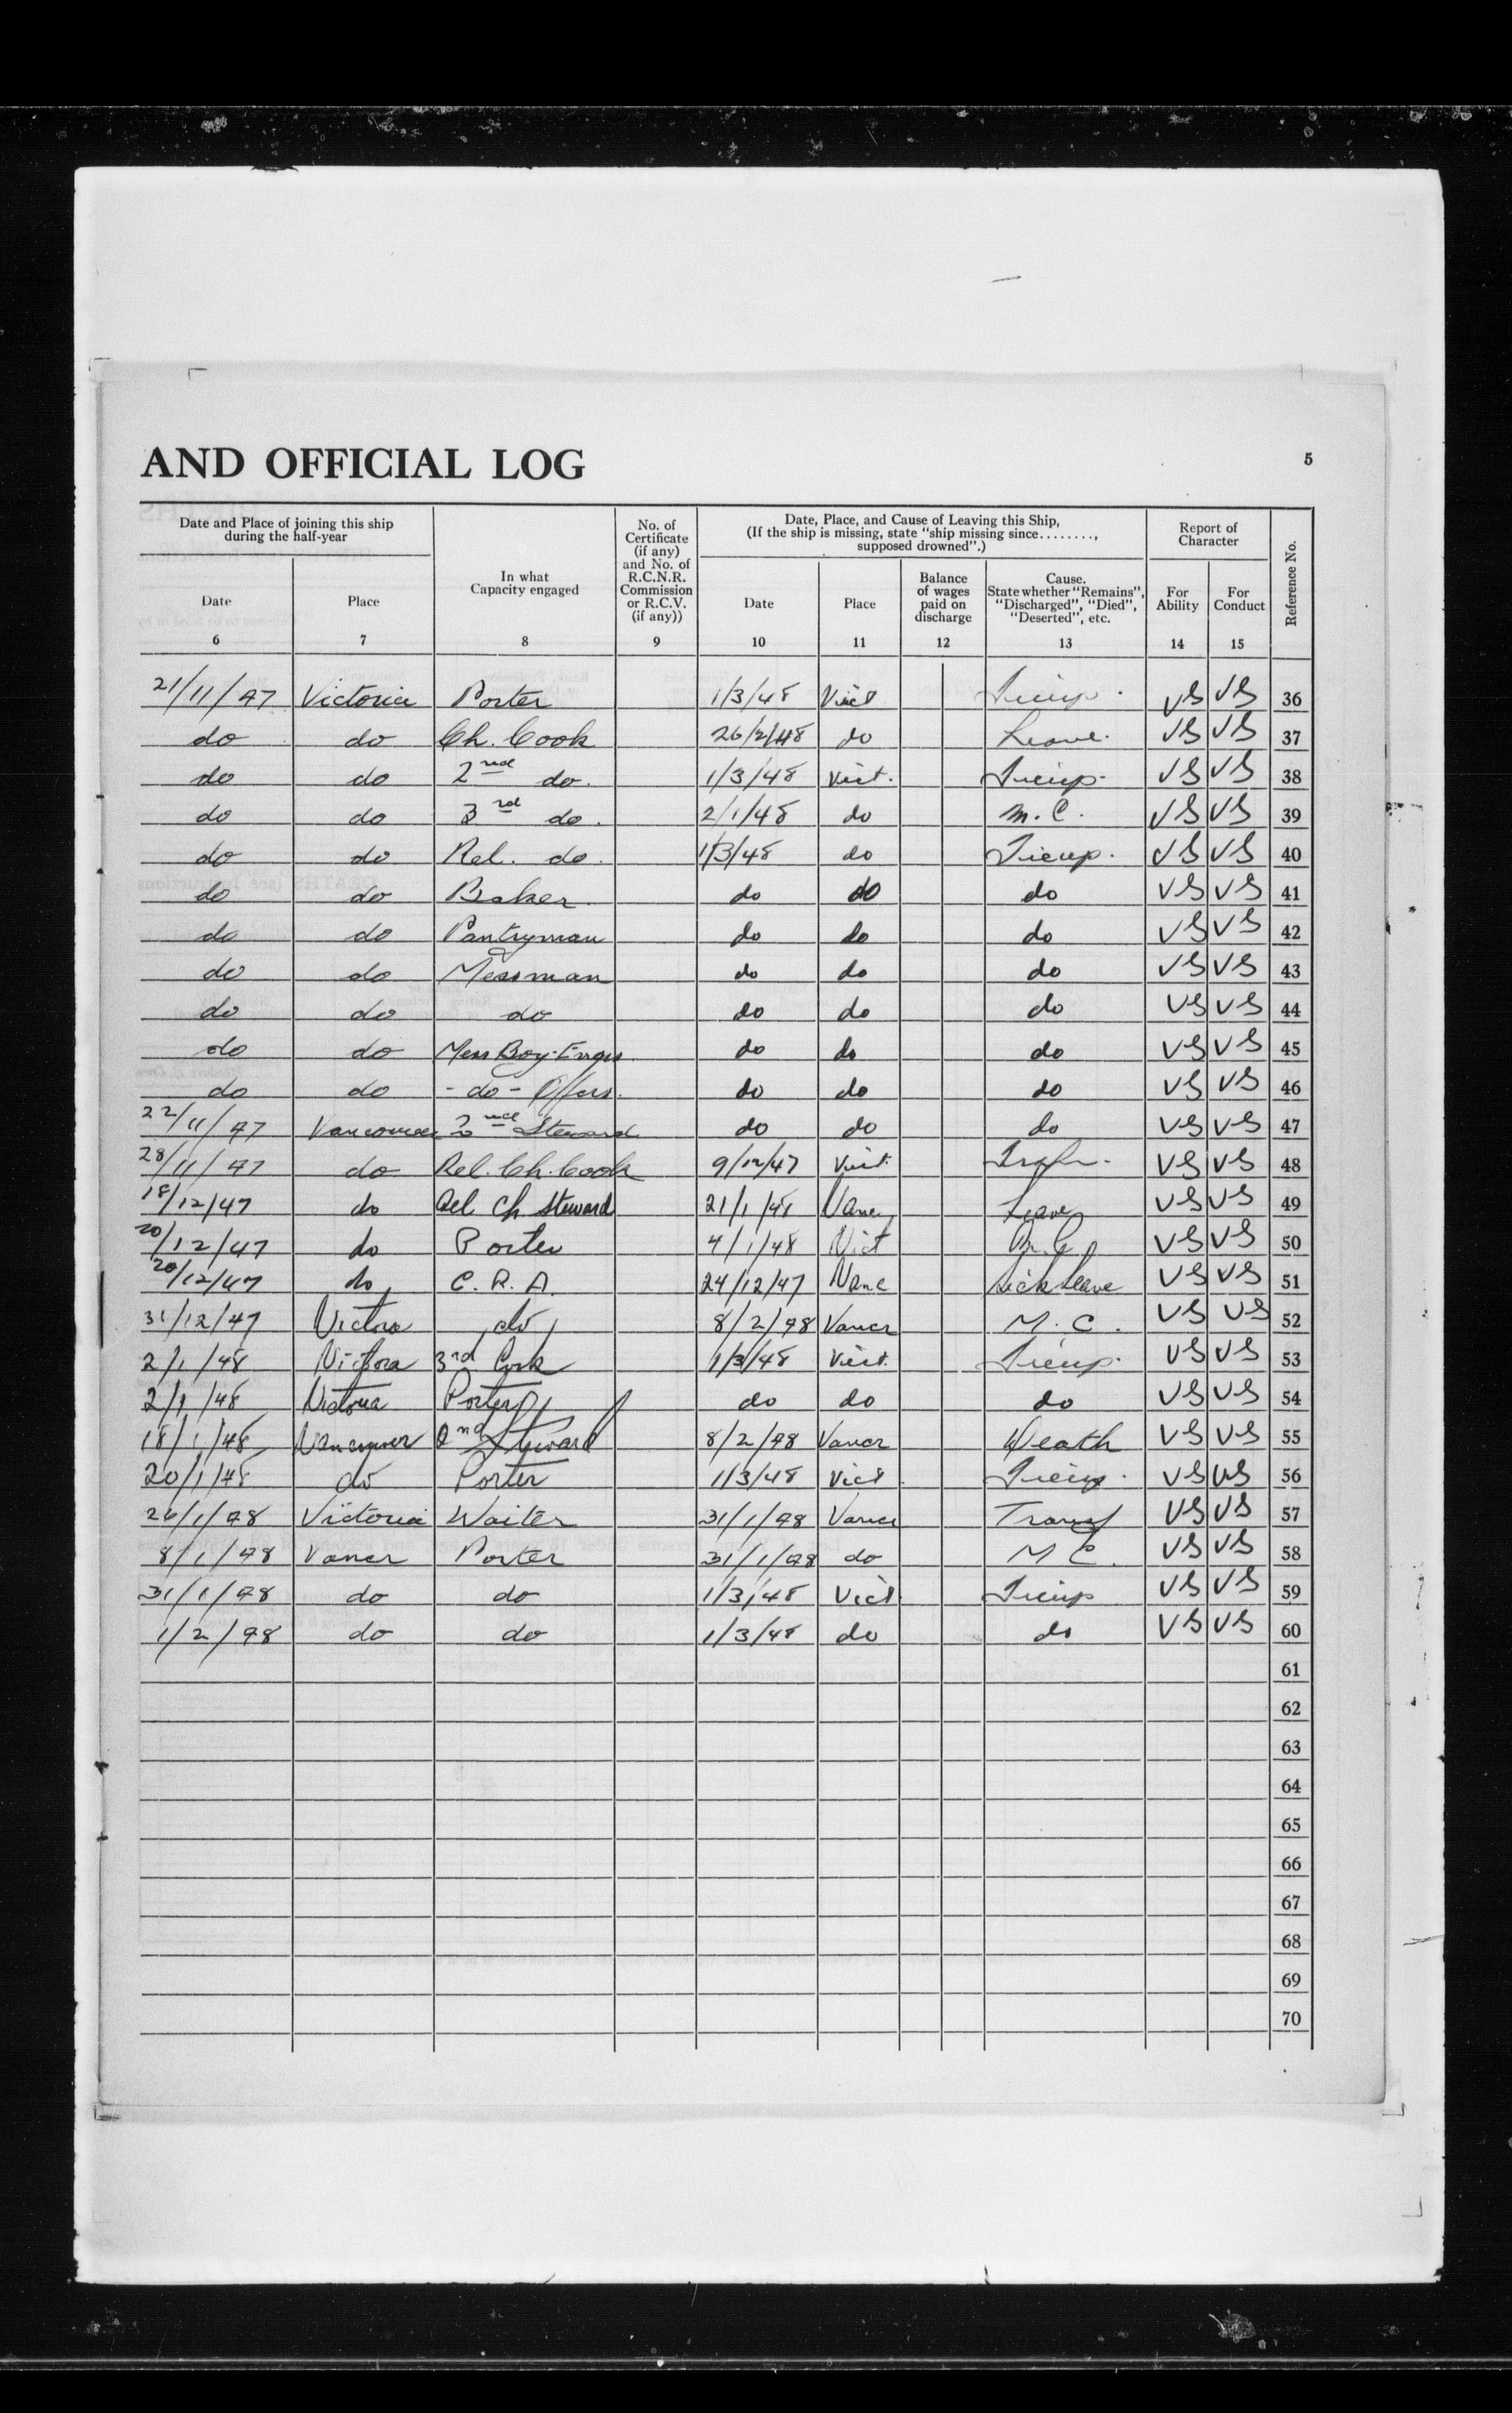 AND OFFICIAL LOG
5
Date and Place of joining this ship
during the half-year
In what
Capacity engaged
No. of
Certificate
(if any)
and No. of
R.C.N.R.
Commission
or R.C.V.
(if any))
Date, Place, and Cause of Leaving this Ship,
(If the ship is missing, state "ship missing since........,
supposed drowned".)
Report of
Character
Reference No.
Date
Place
Date
Place
Balance
of wages
paid on
discharge
Cause.
State whether "Remains",
"Discharged", "Died",
"Deserted", etc.
For
Ability
For
Conduct
6 7 8 9 10 11 12 13 14 15
21/11/47 Victoria Porter 1/3/48 Vict Tieup. VG VG 36
do do Ch. Cook 26/2/48 do Leave. VG VG 37
do do 2nd do. 1/3/48 Vict. Tieup. VG VG 38
do do 3rd do. 2/1/48 do M.C. VG VG 39
do do Rel. do. 1/3/48 do Tieup. VG VG 40
do do Baker. do do do VG VG 41
do do Pantryman do do do VG VG 42
do do Messman do do do VG VG 43
do do do do do do VG VG 44
do do Mess Boy-Engrs do do do VG VG 45
do do - do - Offers. do do do VG VG 46
22/11/47 Vancouver 2nd Steward do do do VG VG 47
28/11/47 do Rel. Ch. Cook 9/12/47 Vict. VG VG 48
18/12/47 do Rel Ch Steward 21/1/48 Vanc Leave VG VG 49
20/12/47 do Porter 4/1/48 Vict M.C. VG VG 50
20/12/47 do C.R.A. 24/12/47 Vanc Sick leave VG VG 51
31/12/47 Victora do 8/2/48 Vancr M.C. VG VG 52
2/1/48 Victora 3rd Cook 1/3/48 Vict. Tieup. VG VG 53
2/1/48 Victoria Porter do do do VG VG 54
18/1/48 Vancouver 2nd Steward 8/2/48 Vancr Death VG VG 55
20/1/48 do Porter 1/3/48 Vict. Tieup. VG VG 56
26/1/48 Victoria Waiter 31/1/48 Vancr Transf VG VG 57
8/1/48 Vancr Porter 31/1/48 do M C. VG VG 58
31/1/48 do do 1/3/48 Vict Tieup VG VG 59
1/2/48 do do 1/3/48 do do VG VG 60
61
62
63
64
65
66
67
68
69
70